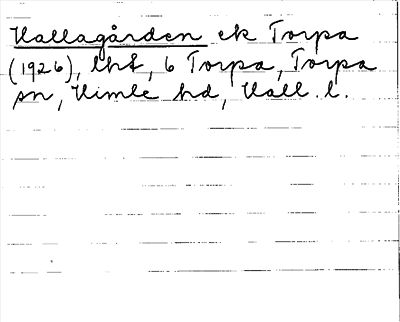 Hallagården ek Torpa
(1926), lht, 6 Torpa, Torpa
sn, Himle hd, Hall. l.